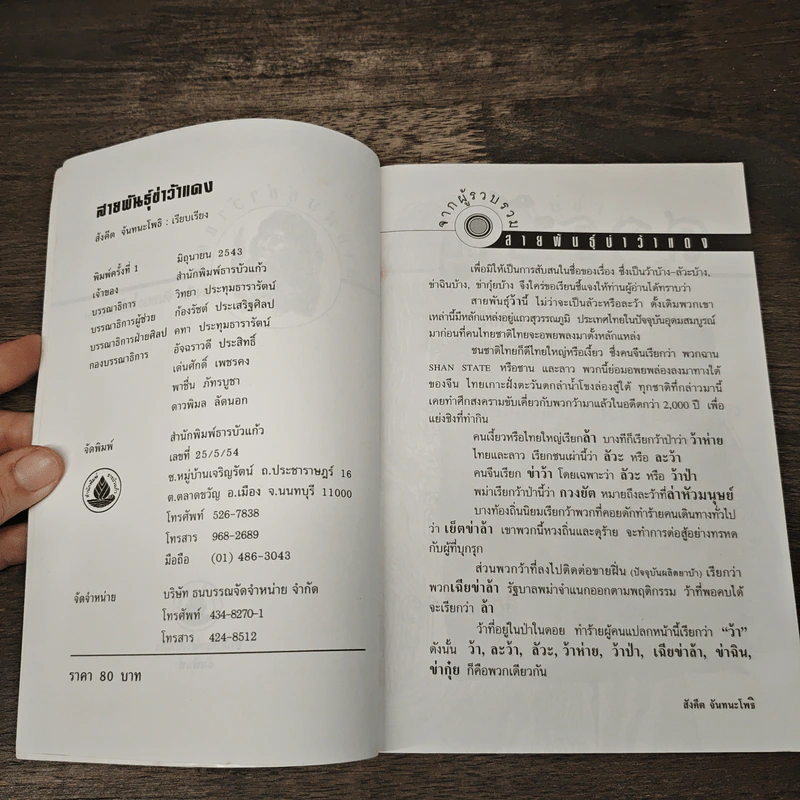 สายพันธุ์ข่าว้าแดง
สังคีต จันทนะโพธิ : เรียบเรียง
พิมพ์ครั้งที่ 1 มิถุนายน 2543
เจ้าของ สำนักพิมพ์ธารบัวแก้ว
บรรณาธิการ วิทยา ประทุมธารารัตน์
บรรณาธิการผู้ช่วย ก้องรัชต์ ประเสริฐศิลป
บรรณาธิการฝ่ายศิลป คทา ประทุมธารารัตน์
กองบรรณาธิการ อัจฉราวดี ประสิทธิ์
เด่นศักดิ์ เพชรคง
พาชื่น ภัทรบูชา
ดาวพิมล ลัดนอก
จัดพิมพ์ สำนักพิมพ์ธารบัวแก้ว
เลขที่ 25/5/54
ซ.หมู่บ้านเจริญรัตน์ ถ.ประชาราษฎร์ 16
ต.ตลาดขวัญ อ.เมือง จ.นนทบุรี 11000
โทรศัพท์ 526-7838
โทรสาร 968-2689
มือถือ (01) 486-3043
จัดจำหน่าย บริษัท ธนบรรณจัดจำหน่าย จำกัด
โทรศัพท์ 434-8270-1
โทรสาร 424-8512
ราคา 80 บาท
จากผู้รวบรวม
สายพันธุ์ข่าว้าแดง
เพื่อมิให้เป็นการสับสนในชื่อของเรื่อง ซึ่งเป็นว้าบ้าง-ลัวะบ้าง,
ข่าฉินบ้าง, ข่ากุ๋ยบ้าง จึงใคร่ขอเรียนชี้แจงให้ท่านผู้อ่านได้ทราบว่า
สายพันธุ์ว้านี้ ไม่ว่าจะเป็นลัวะหรือละว้า ดั้งเดิมพวกเขา
เหล่านี้มีหลักแหล่งอยู่แถวสุวรรณภูมิ ประเทศไทยในปัจจุบันอุดมสมบูรณ์
มาก่อนที่คนไทยชาติไทยจะอพยพลงมาตั้งหลักแหล่ง
ชนชาติไทยก็ดีไทยใหญ่หรือเงี้ยว ซึ่งคนจีนเรียกว่า พวกฉาน
SHAN STATE หรือชาน และลาว พวกนี้ย่อมอพยพล่องลงมาทางใต้
ของจีน ไทยเกาะฝั่งตะวันตกลำน้ำโขงล่องสู่ใต้ ทุกชาติที่กล่าวมานี้
เคยทำศึกสงครามขับเคี่ยวกับพวกว้ามาแล้วในอดีตกว่า 2,000 ปี เพื่อ
แย่งชิงที่ทำกิน
คนเงี้ยวหรือไทยใหญ่เรียกล้า บางทีก็เรียกว้าป่าว่า ว้าห่าย
ไทยและลาว เรียกชนเผ่านี้ว่า ลัวะ หรือ ละว้า
คนจีนเรียก ข่าว้า โดยเฉพาะว่า ลัวะ หรือ ว้าป่า
พม่าเรียกว้าป่านี้ว่า กวงยัต หมายถึงละว้าที่ล่าหัวมนุษย์
บางท้องถิ่นนิยมเรียกว้าพวกที่คอยดักทำร้ายคนเดินทางทั่วไป
ว่า เย็ตข่าล้า เขาพวกนี้หวงถิ่นและดุร้าย จะทำการต่อสู้อย่างทรหด
กับผู้ที่บุกรุก
ส่วนพวกว้าที่ลงไปติดต่อขายฝิ่น (ปัจจุบันผลิตยาบ้า) เรียกว่า
พวกเฉียข่าล้า รัฐบาลพม่าจำแนกออกตามพฤติกรรม ว้าที่พอคบได้
จะเรียกว่า ล้า
ว้าที่อยู่ในป่าในดอย ทำร้ายผู้คนแปลกหน้านี้เรียกว่า “ว้า”
ดังนั้น ว้า, ละว้า, ลัวะ, ว้าห่าย, ว้าป่า, เฉียข่าล้า, ข่าฉิน,
ข่ากุ๋ย ก็คือพวกเดียวกัน
สังคีต จันทนะโพธิ